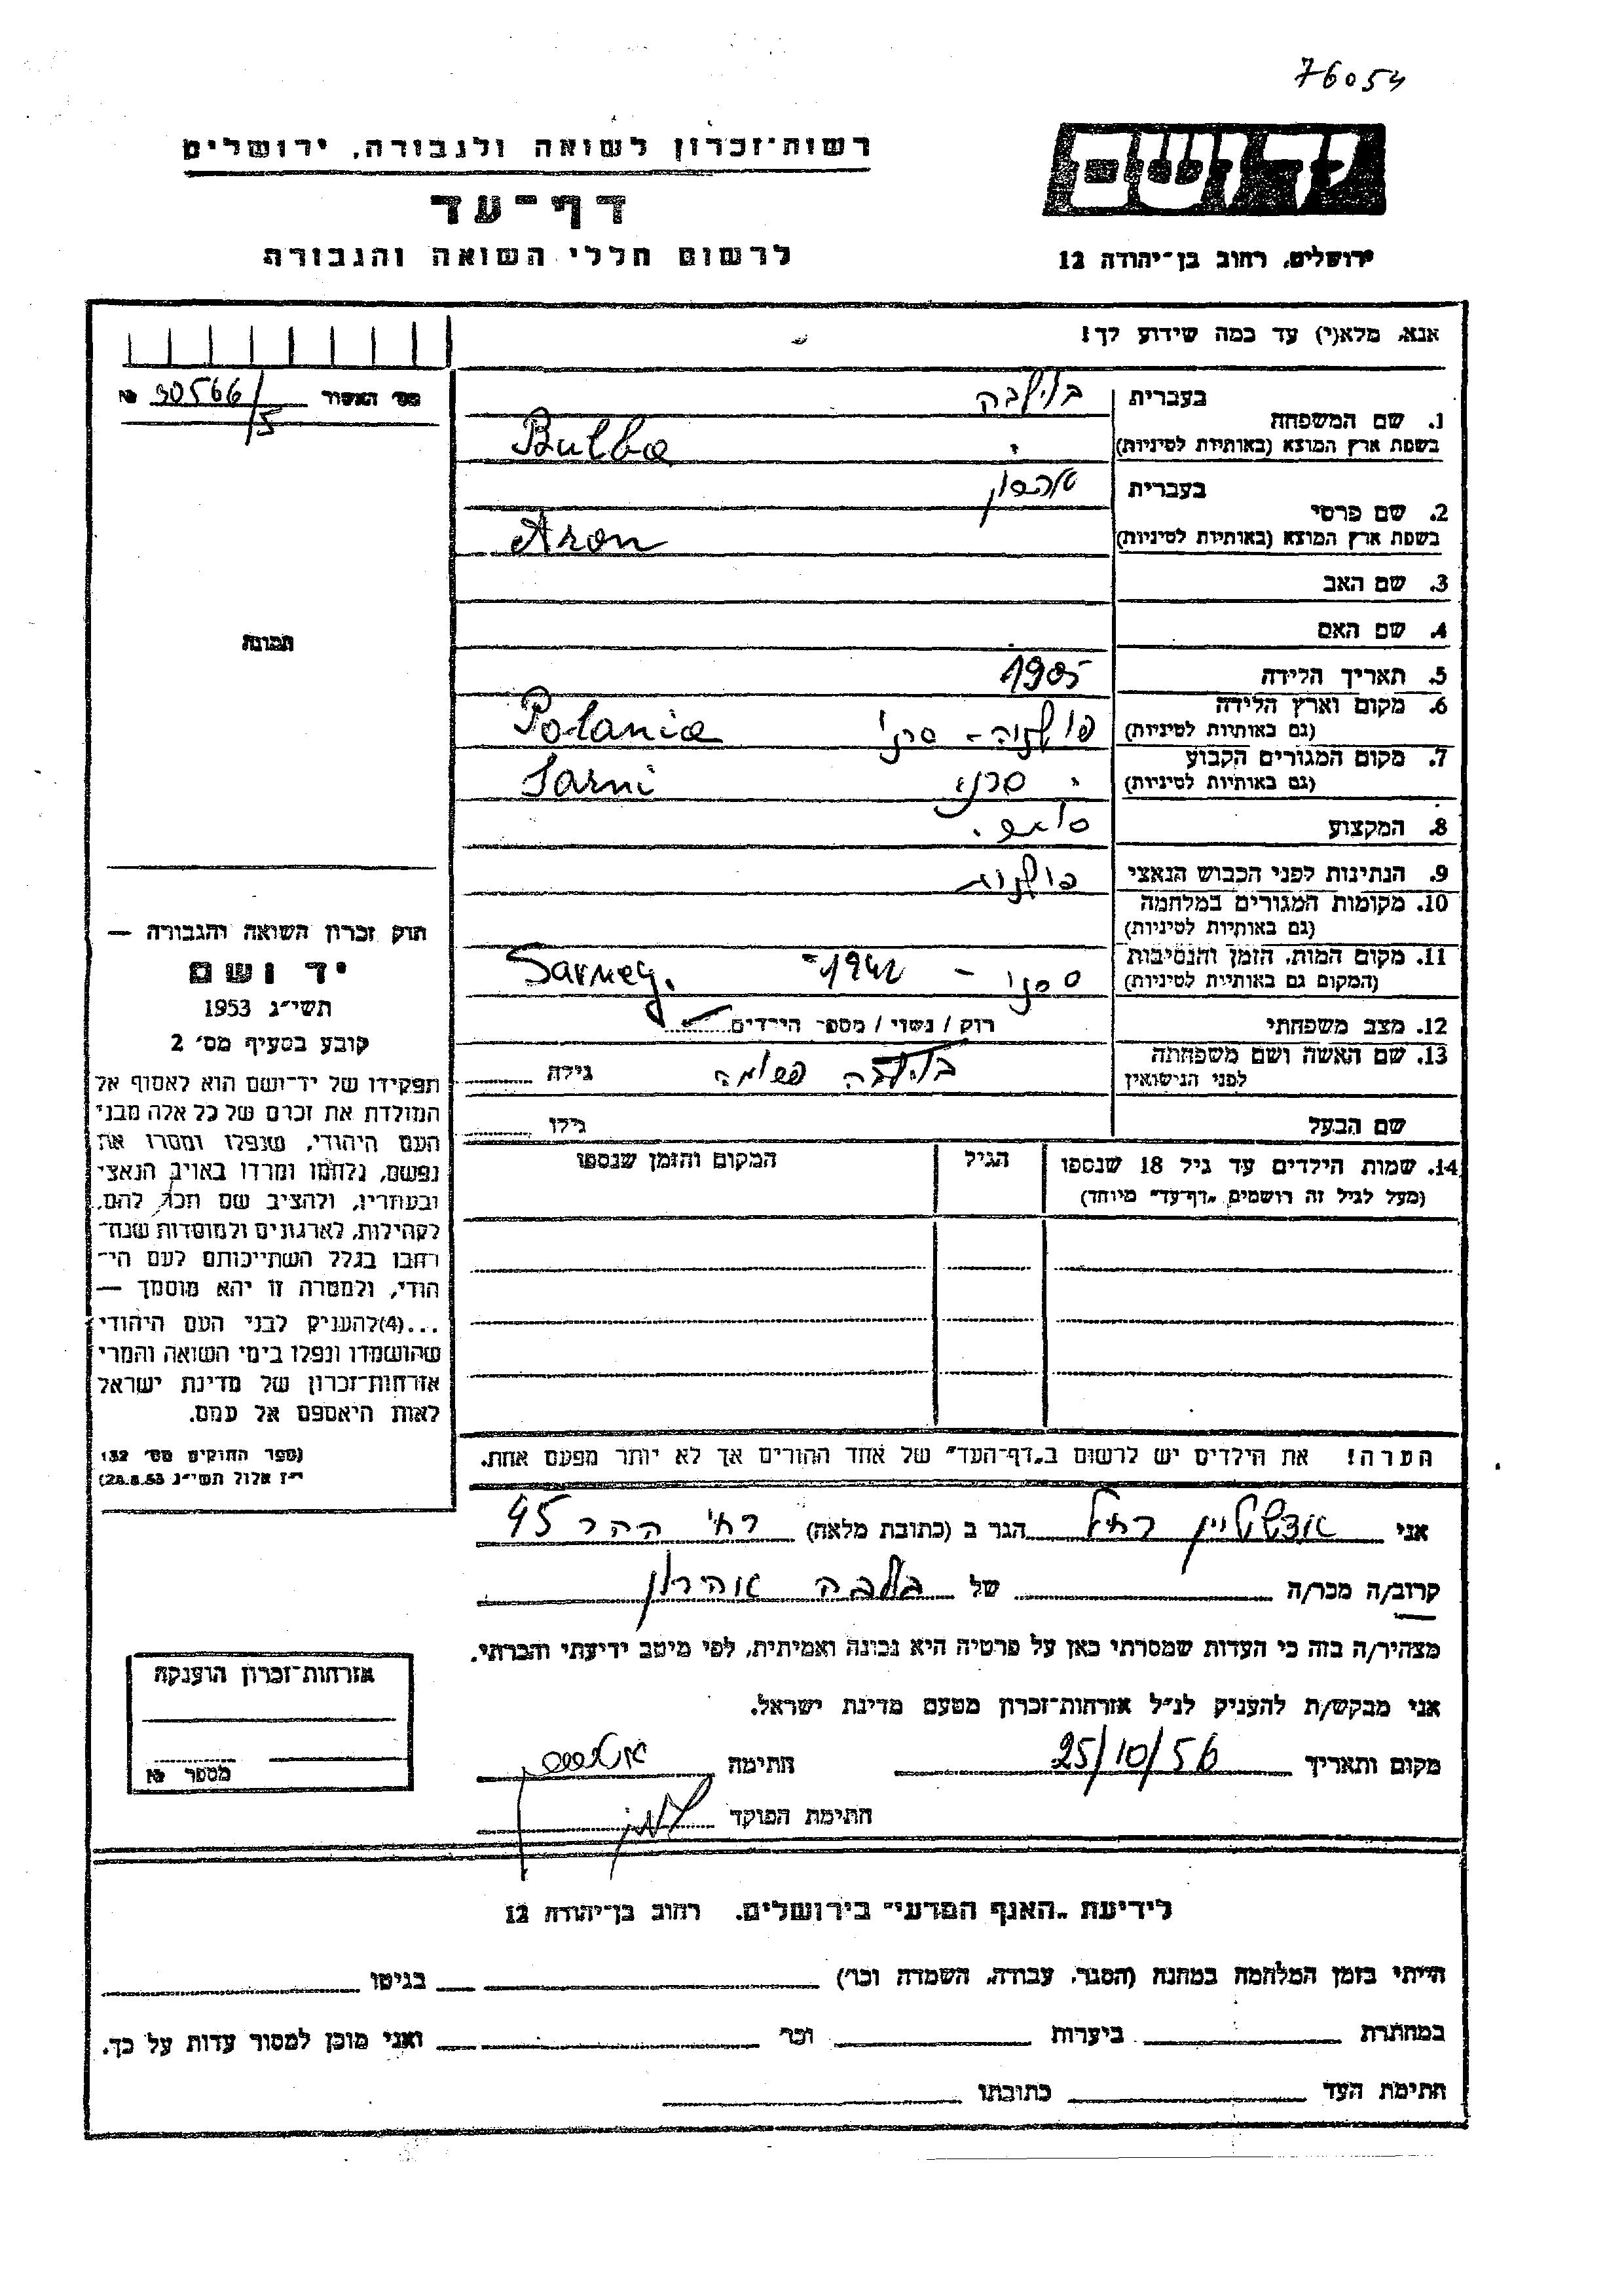 76054
יד ושם
ירושלים, רחוב בן־יהודה 12
רשות־זכרון לשואה ולגבורה, ירושלים
דף־עד
לרשום חללי השואה והגבורה
אנא, מלא(י) עד כמה שידוע לך!
מס׳ האשור № 30566/5
תמונה
1. שם המשפחה
בעברית בולבה
בשפת ארץ המוצא (באותיות לטיניות) Bulba
2. שם פרטי
בעברית אהרון
בשפת ארץ המוצא (באותיות לטיניות) Aron
3. שם האב
4. שם האם
5. תאריך הלידה 1905
6. מקום וארץ הלידה
(גם באותיות לטיניות) פולניה - סרני Polania
7. מקום המגורים הקבוע
(גם באותיות לטיניות) סרני Sarni
8. המקצוע
9. הנתינות לפני הכבוש הנאצי פולנית
10. מקומות המגורים במלחמה
(גם באותיות לטיניות)
11. מקום המות, הזמן והנסיבות
(המקום גם באותיות לטיניות) סרני - 1942 Sarney.
12. מצב משפחתי רוק / נשוי / מספר הילדים
13. שם האשה ושם משפחתה
לפני הנישואין בולבה גילה
שם הבעל גילו
14. שמות הילדים עד גיל 18 שנספו
(מעל לגיל זה רושמים „דף־עד״ מיוחד)
הגיל
המקום והזמן שנספו
הערה! את הילדים יש לרשום ב„דף־העד״ של אחד ההורים אך לא יותר מפעם אחת.
חוק זכרון השואה והגבורה —
יד ושם
תשי״ג 1953
קובע בסעיף מס׳ 2
תפקידו של יד־ושם הוא לאסוף אל
המולדת את זכרם של כל אלה מבני
העם היהודי, שנפלו ומסרו את
נפשם, נלחמו ומרדו באויב הנאצי
ובעוזריו, ולהציב שם וזכר להם,
לקהילות, לארגונים ולמוסדות שנח־
רבו בגלל השתייכותם לעם הי־
הודי, ולמטרה זו יהא מוסמך —
...(4)להעניק לבני העם היהודי
שהושמדו ונפלו בימי השואה והמרי
אזרחות־זכרון של מדינת ישראל
לאות היאספם אל עמם.
(ספר החוקים מס׳ 132
י״ז אלול תשי״ג 28.8.53)
אני רחל הגר ב (כתובת מלאה) רח׳ ההר 45
קרוב/ה מכר/ה של בולבה אהרון
מצהיר/ה בזה כי העדות שמסרתי כאן על פרטיה היא נכונה ואמיתית, לפי מיטב ידיעתי והכרתי.
אני מבקש/ת להעניק לנ״ל אזרחות־זכרון מטעם מדינת ישראל.
מקום ותאריך 25/10/56 חתימה
חתימת הפוקד
אזרחות־זכרון הוענקה
מספר №
לידיעת „האגף המדעי״ בירושלים, רחוב בן־יהודה 12
הייתי בזמן המלחמה במחנה (הסגר, עבודה, השמדה וכו׳) בגיטו
במחתרת ביערות וכו׳ ואני מוכן למסור עדות על כך.
חתימת העד כתובתו